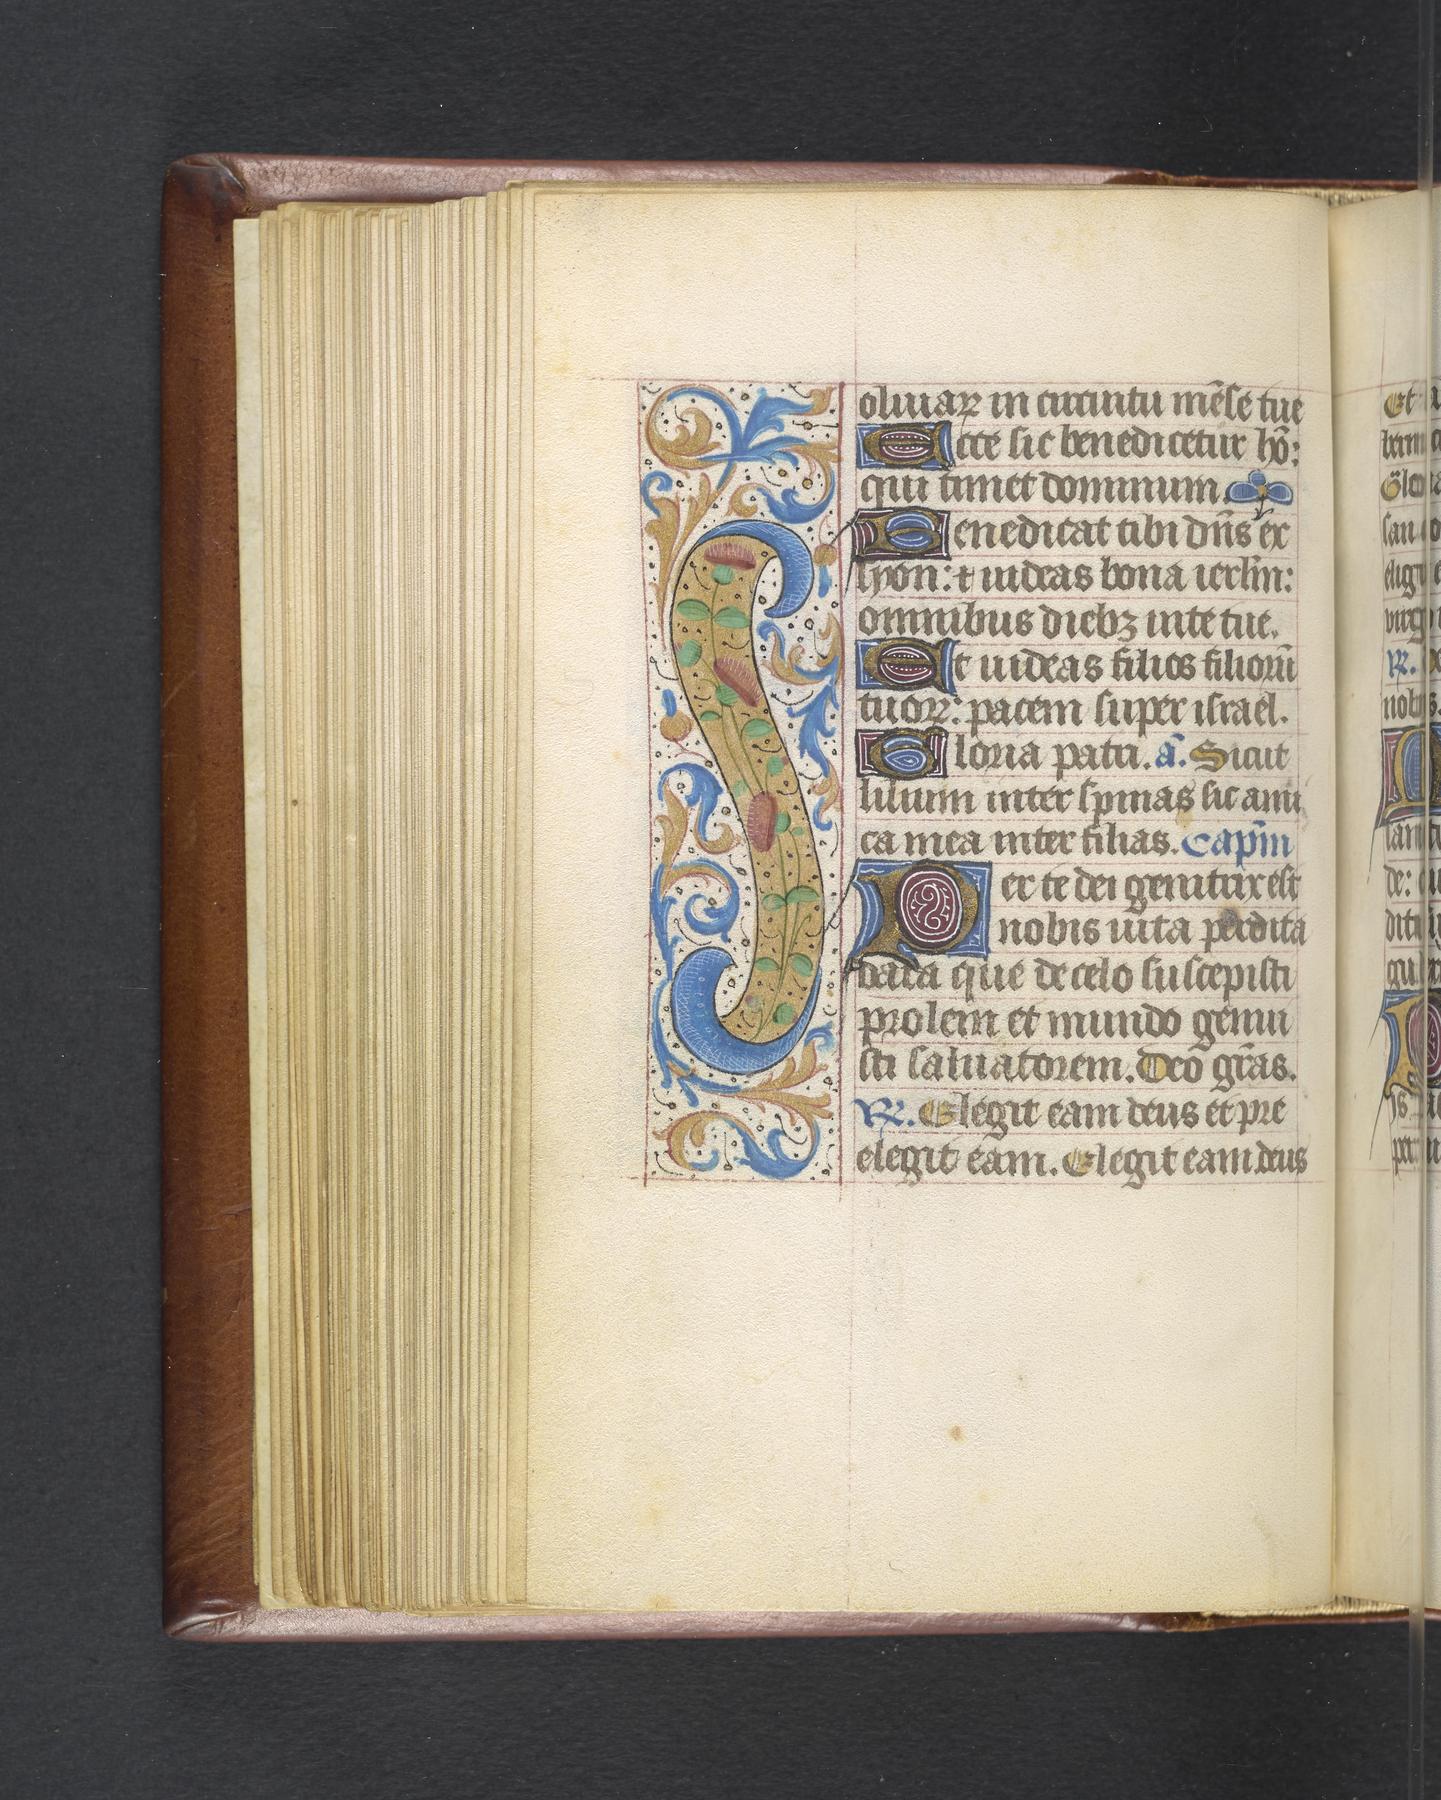 oliuaꝝ in circuitu mēse tue
Ecce sic benedicetur hō:
qui timet dominum.
Benedicat tibi dn̄s ex
syon: ⁊ uideas bona ierl̄m:
omnibus diebꝫ uite tue.
Et uideas filios filiorū
tuoꝝ: pacem super israel.
Gloria patri. ā. Sicut
lilium inter spinas sic ami
ca mea inter filias. Capm̄
Per te dei genitrix est
nobis uita perdita
data que de celo suscepisti
prolem et mundo genui
sti saluatorem. Deo gr̄as.
℟. Elegit eam deus et pre
elegit eam. Elegit eam deus